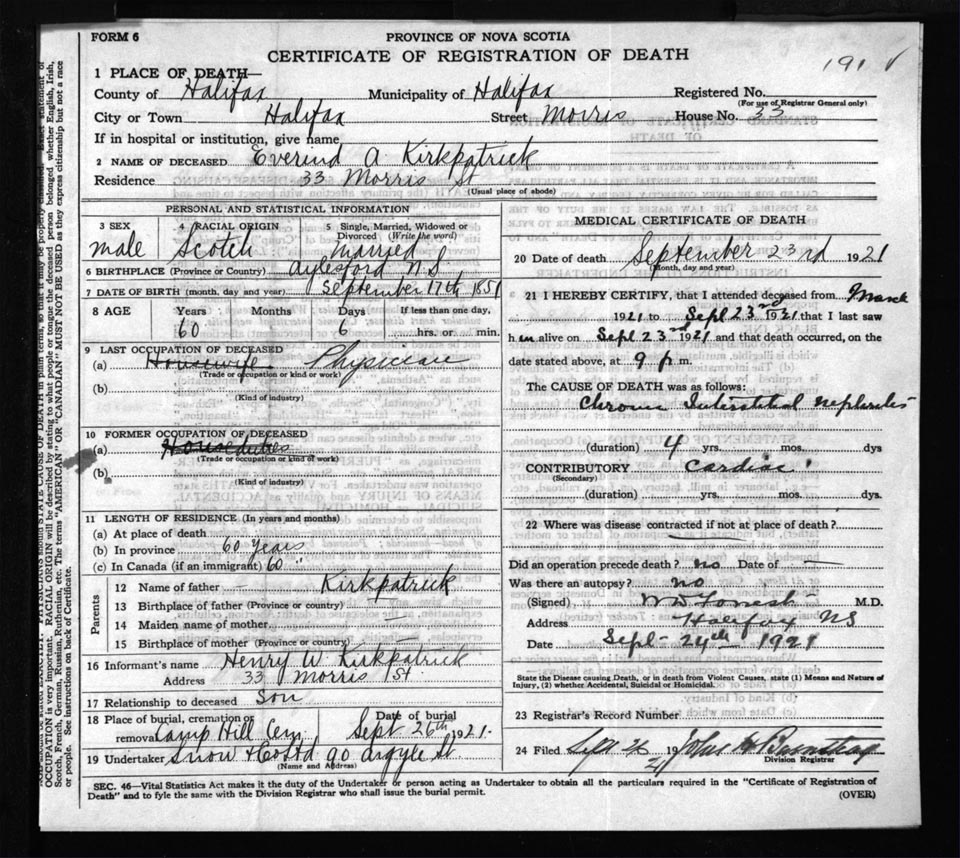 FORM 6
PROVINCE OF NOVA SCOTIA
CERTIFICATE OF REGISTRATION OF DEATH
191
1 PLACE OF DEATH—
County of Halifax Municipality of Halifax Registered No.
(For use of Registrar General only)
City or Town Halifax Street Morris House No. 33
If in hospital or institution, give name
2 NAME OF DECEASED Everind A Kirkpatrick
Residence 33 Morris St
(Usual place of abode)
PERSONAL AND STATISTICAL INFORMATION
3 SEX male
4 RACIAL ORIGIN Scotch
5 Single, Married, Widowed or Divorced (Write the word) Married
6 BIRTHPLACE (Province or Country) Aylesford N S
7 DATE OF BIRTH (month, day and year) September 17th 1851
8 AGE Years Months Days If less than one day,
60 6 hrs. or min.
9 LAST OCCUPATION OF DECEASED
(a) Housewife Physician
(Trade or occupation or kind or work)
(b)
(Kind of industry)
10 FORMER OCCUPATION OF DECEASED
(a) House duties
(Trade or occupation or kind of work)
(b)
(Kind of industry)
11 LENGTH OF RESIDENCE (In years and months)
(a) At place of death
(b) In province 60 years
(c) In Canada (if an immigrant) 60 "
Parents
12 Name of father — Kirkpatrick
13 Birthplace of father (Province or country) —
14 Maiden name of mother —
15 Birthplace of mother (Province or country) —
16 Informant's name Henry W. Kirkpatrick
Address 33 Morris St.
17 Relationship to deceased Son
18 Place of burial, cremation or removal Camp Hill Cem. Date of burial Sept 26th 1921.
19 Undertaker Snow & Co Ltd 90 Argyle St
(Name and Address)
MEDICAL CERTIFICATE OF DEATH
20 Date of death September 23rd 1921
(Month, day and year)
21 I HEREBY CERTIFY, that I attended deceased from March
1921 to Sept 23rd 1921 that I last saw
h im alive on Sept 23rd 1921 and that death occurred, on the
date stated above, at 9 p m.
The CAUSE OF DEATH was as follows:
Chronic Interstitial Nephritis
(duration) 4 yrs. mos. dys
CONTRIBUTORY Cardiac
(Secondary)
(duration) yrs. mos. dys.
22 Where was disease contracted if not at place of death?
Did an operation precede death? no Date of —
Was there an autopsy? no
(Signed) M.D.
Address Halifax NS
Date Sept- 24th 1921
State the Disease causing Death, or in death from Violent Causes, state (1) Means and Nature of Injury, (2) whether Accidental, Suicidal or Homicidal.
23 Registrar's Record Number
24 Filed 19
Division Registrar
SEC. 46—Vital Statistics Act makes it the duty of the Undertaker or person acting as Undertaker to obtain all the particulars required in the "Certificate of Registration of
Death" and to fyle the same with the Division Registrar who shall issue the burial permit.
(OVER)
OCCUPATION is very important. RACIAL ORIGIN will be described by stating to what people or tongue the deceased person belonged whether English, Irish,
Scotch, French, German, Russian, Ruthenian, etc. The terms "AMERICAN" OR "CANADIAN" MUST NOT BE USED as they express citizenship but not a race
or people. See instructions on back of Certificate.